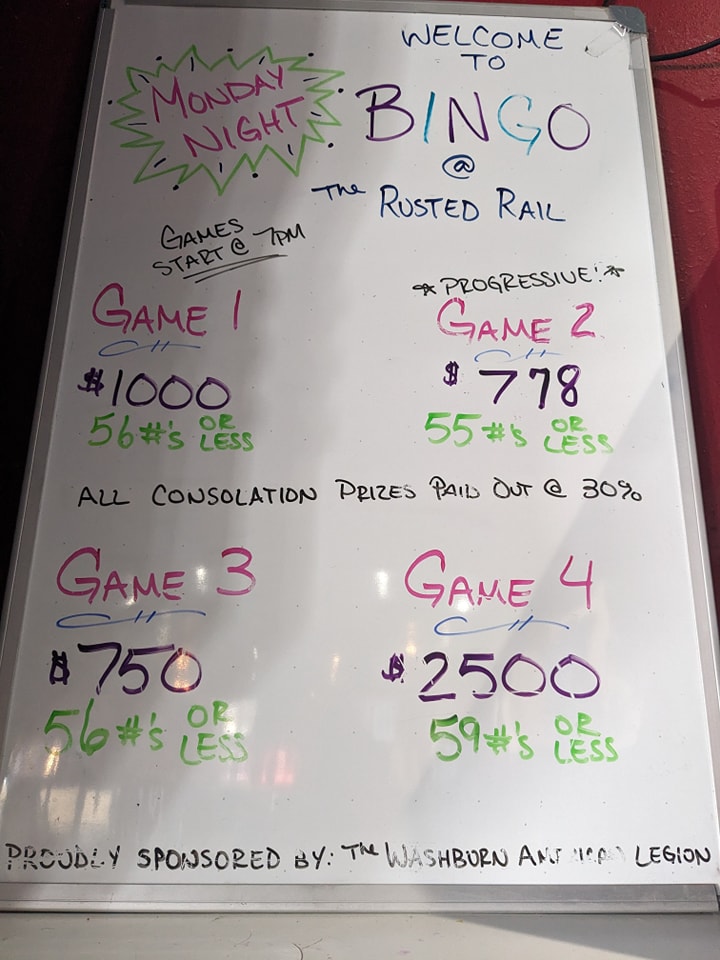 WELCOME
TO
BINGO
@
THE RUSTED RAIL
MONDAY
NIGHT
GAMES
START @ 7PM
GAME 1
$1000
56#'s OR LESS
*PROGRESSIVE!*
GAME 2
$778
55#'s OR LESS
ALL CONSOLATION PRIZES PAID OUT @ 30%
GAME 3
$750
56#'s OR LESS
GAME 4
$2500
59#'s OR LESS
PROUDLY SPONSORED BY: THE WASHBURN LEGION